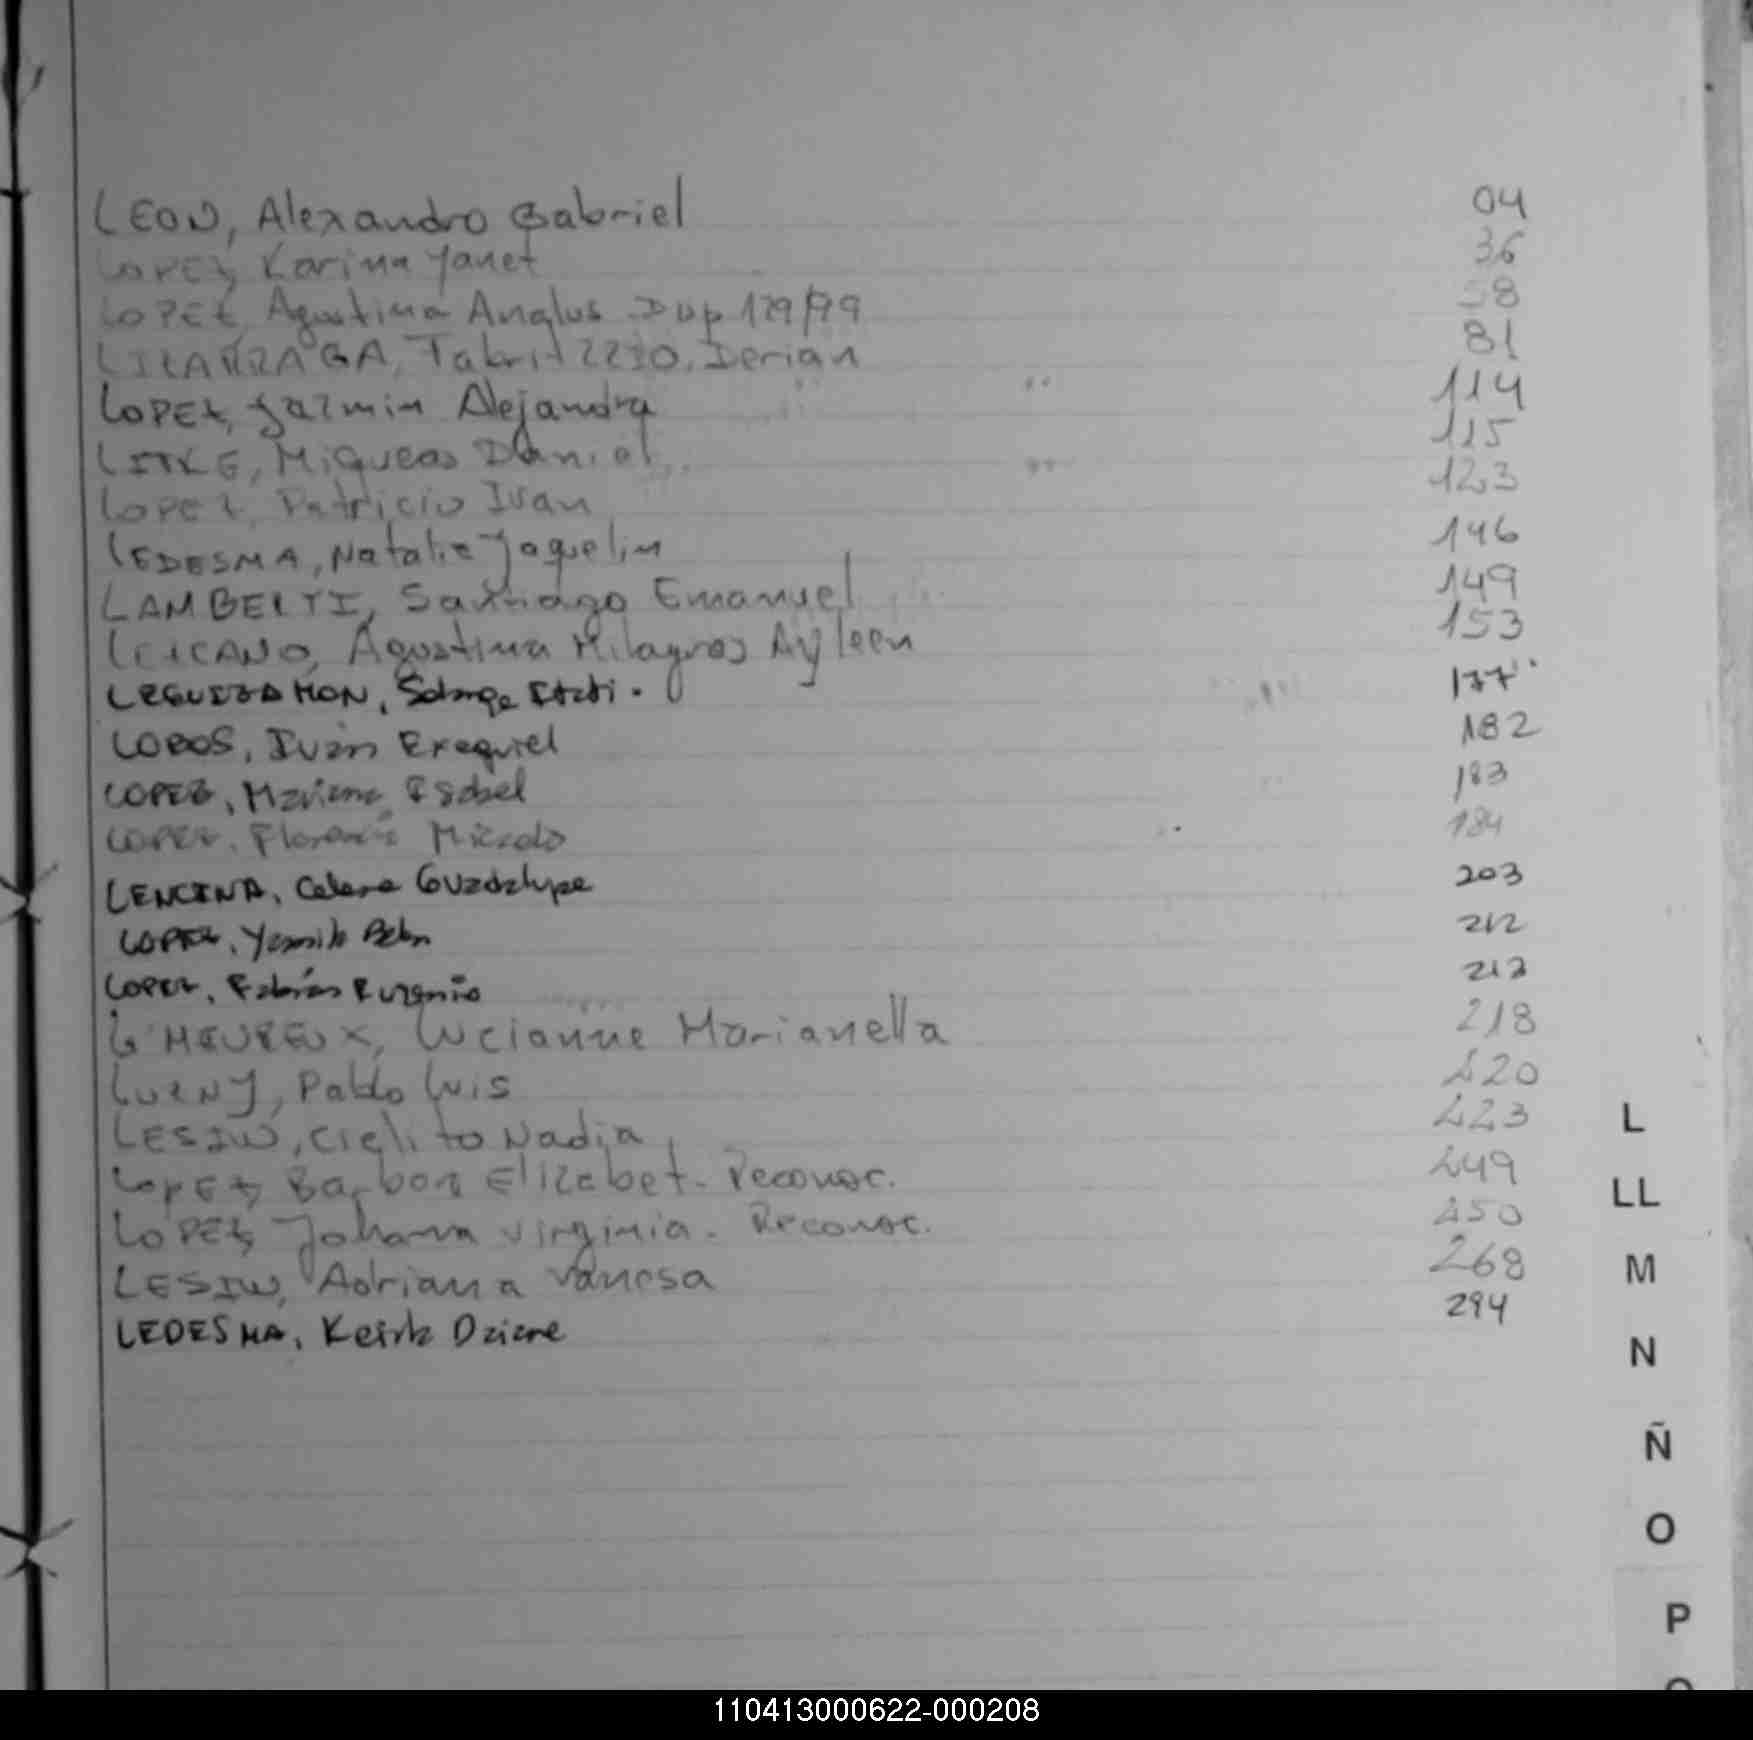 LEON, Alexandro Gabriel 04
LOPEZ, Karina Yanet 36
LOPEZ, Agustina Anglus Dup 129/99 58
LIZARRAGA, Fabritzzio, Derian 81
LOPEZ, Jazmin Alejandra 114
LITKE, Miqueas Daniel 115
LOPEZ, Patricio Ivan 123
LEDESMA, Natalia Jaquelin 146
LAMBERTI, Santiago Emanuel 149
LEZCANO, Agustina Milagros Ayleen 153
LEGUIZAMON, Solange Itati. 177
LOBOS, Iván Exequiel 182
LOPEZ, Mariana Isabel 183
LOPEZ, Florencia Micaela 184
LENCINA, Celena Guadalupe 203
LOPEZ, Yamila Belen 212
LOPEZ, Fabián Eugenio 213
L'HEUREUX, Lucianne Marianella 218
Pablo Luis 220
LESIW, Cielito Nadia 223
LOPEZ, Barbara Elizabet - Reconoc. 249
LOPEZ, Johana Virginia - Reconoc. 250
LESIW, Adriana Vanesa 268
LEDESMA, Keila Daiana 294
L
LL
M
N
Ñ
O
P
110413000622-000208